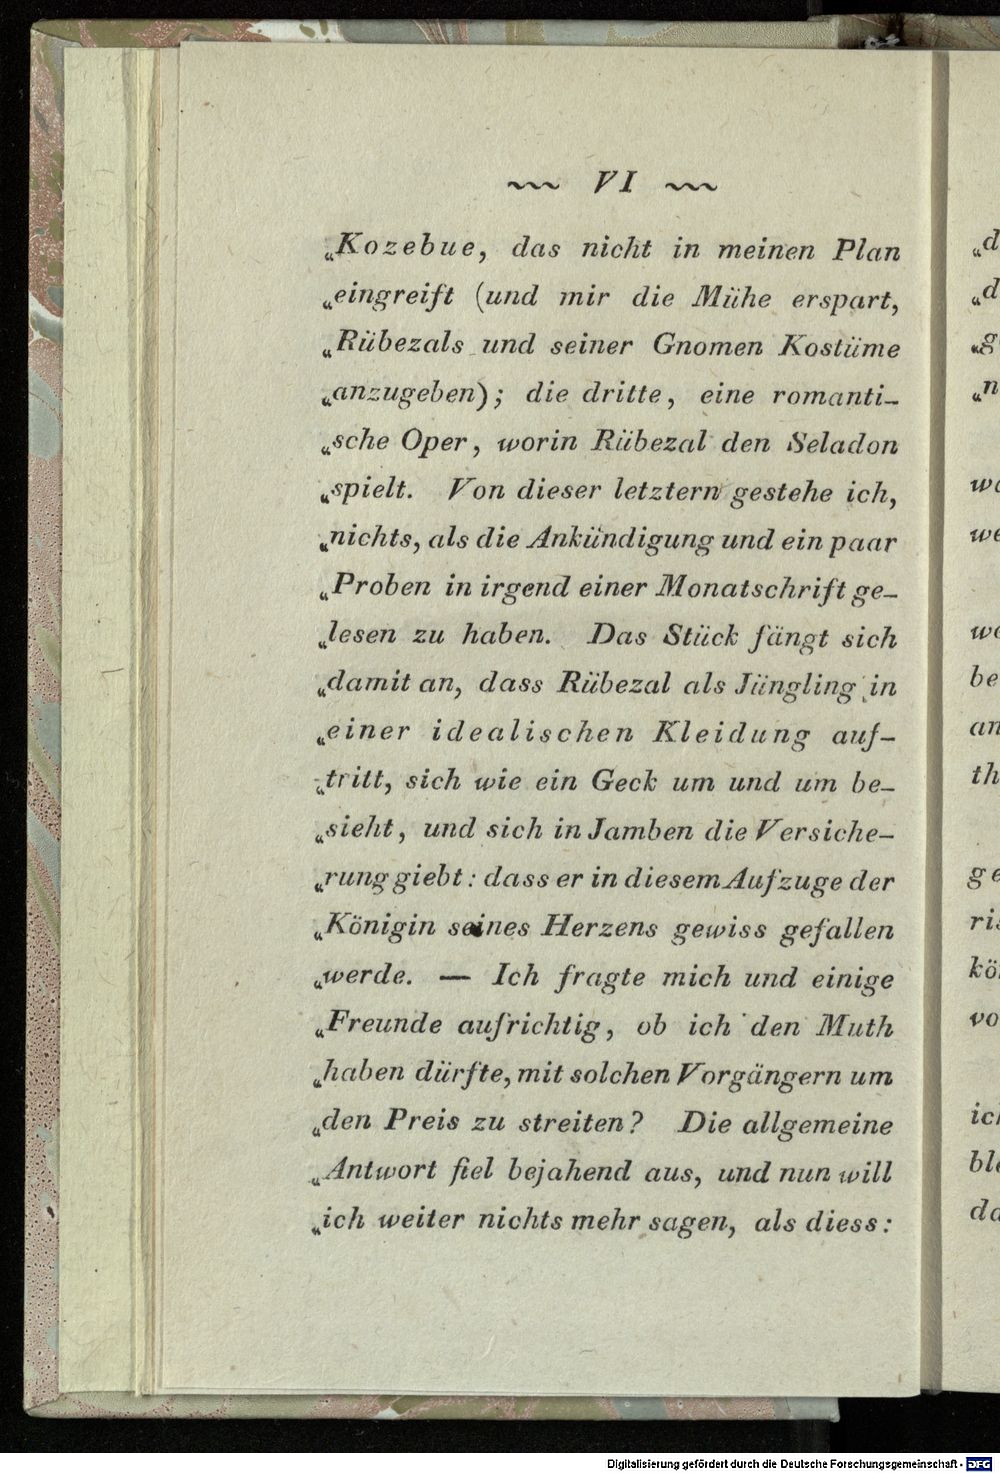 ~~ VI ~~
„Kozebue, das nicht in meinen Plan
„eingreift (und mir die Mühe erspart,
„Rübezals und seiner Gnomen Kostüme
„anzugeben); die dritte, eine romanti-
„sche Oper, worin Rübezal den Seladon
„spielt. Von dieser letztern gestehe ich,
„nichts, als die Ankündigung und ein paar
„Proben in irgend einer Monatschrift ge-
„lesen zu haben. Das Stück fängt sich
„damit an, dass Rübezal als Jüngling in
„einer idealischen Kleidung auf-
„tritt, sich wie ein Geck um und um be-
„sieht, und sich in Jamben die Versiche-
„rung giebt: dass er in diesem Aufzuge der
„Königin seines Herzens gewiss gefallen
„werde. — Ich fragte mich und einige
„Freunde aufrichtig, ob ich den Muth
„haben dürfte, mit solchen Vorgängern um
„den Preis zu streiten? Die allgemeine
„Antwort fiel bejahend aus, und nun will
„ich weiter nichts mehr sagen, als diess:
Digitalisierung gefördert durch die Deutsche Forschungsgemeinschaft - DFG